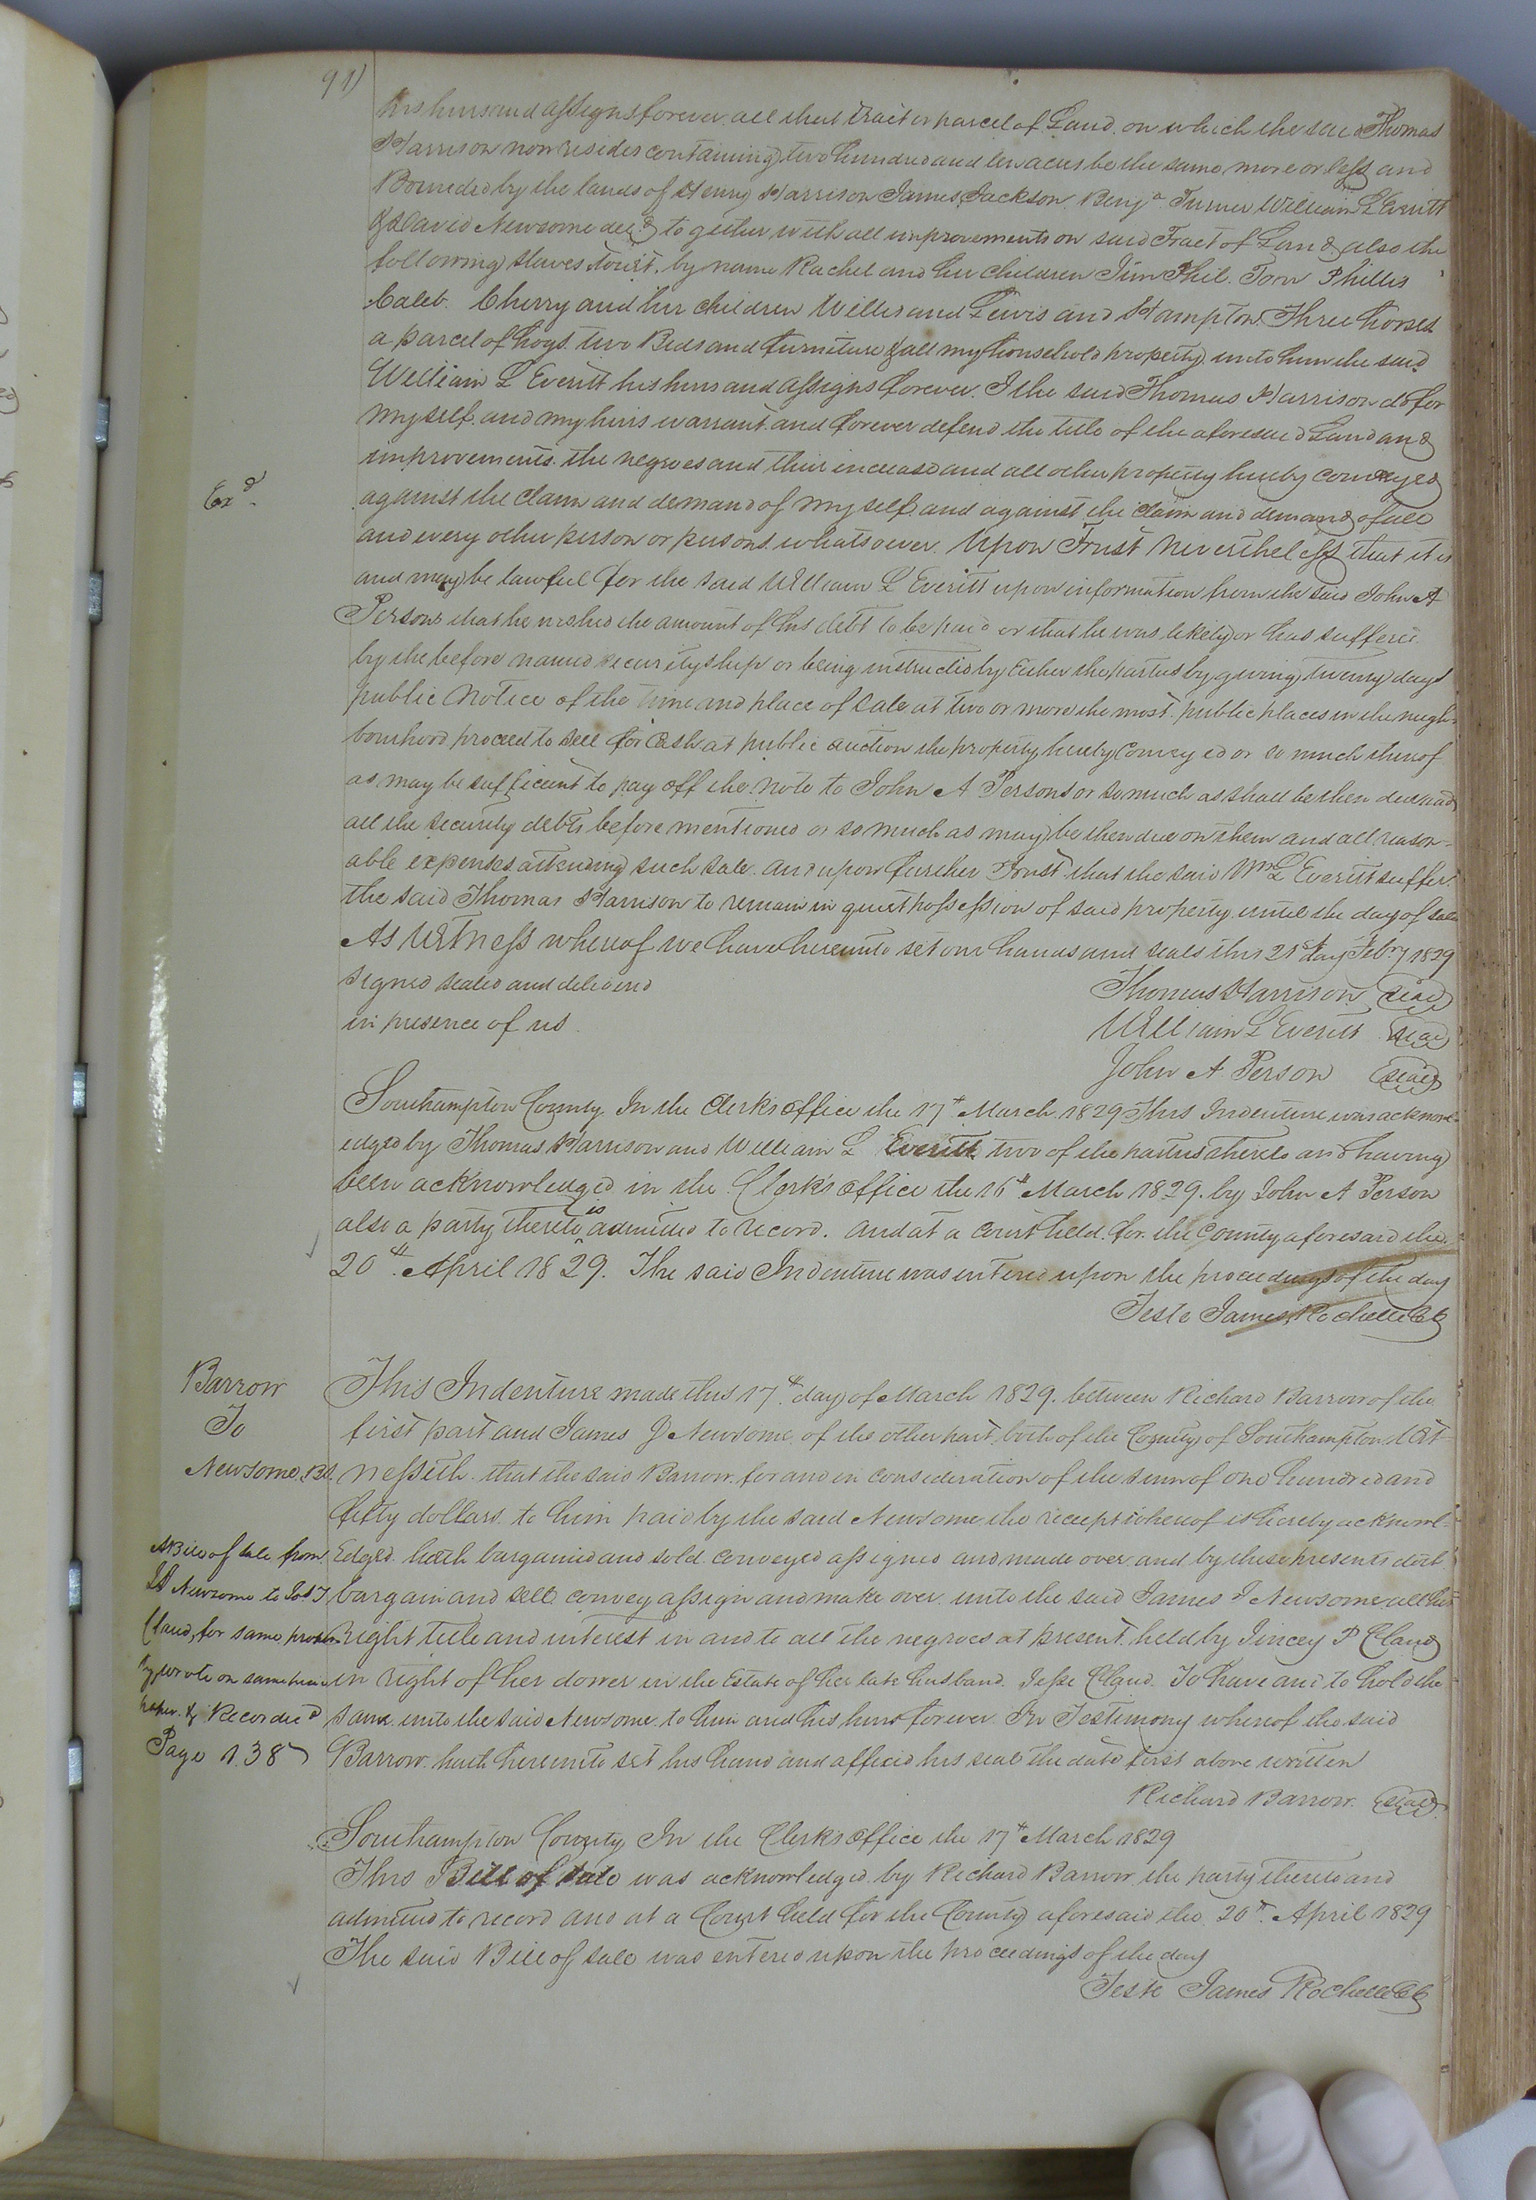 his heirs and assigns forever. all that tract or parcel of Land, on which the said Thomas
Harrison now resides containing two hundred and ten acres be the same more or less and
Bounded by the lands of Henry Harrison James Jackson Benja Turner William L Everitt
& David Newsome decd together with all improvements on said Tract of Land & also the
following slaves towit, by name Rachel and her children Jim Phil. Tom Phillis
Caleb. Cherry and her children Willis and Lewis and Hampton, Three horses
a parcel of hogs two Beds and furniture & all my household property unto him the said
William L Everitt his heirs and assigns forever. I the said Thomas Harrison do for
myself and my heirs warrant and forever defend the title of the aforesaid Land and
improvements the negroes and their increase and all other property hereby conveyed
Exd.
against the claim and demand of myself and against the claim and demand of all
and every other person or persons whatsoever. Upon Trust Nevertheless that it is
and may be lawful for the said William L Everitt upon information from the said John A
Persons that he wished the amount of his debt to be paid or that he was likely or has suffered
by the before named securityship or being instructed by Either the parties by giving twenty days
public Notice of the time and place of sale at two or more the most public places in the neigh-
bourhood proceed to sell for cash at public auction the property hereby conveyed or so much thereof
as may be sufficient to pay off the note to John A Persons or so much as shall be then due and
all the security debts before mentioned or so much as may be then due on them and all reason-
able expenses attending such sale. And upon further Trust that the said Wm L Everitt suffer
the said Thomas Harrison to remain in quiet possession of said property until the day of sale
As Witness whereof we have hereunto set our hands and seals this 21st day Feby 1829
Signed sealed and delivered
Thomas Harrison (seal)
in presence of us
William L Everitt (seal)
John A Person (seal)
Southampton County. In the Clerks office the 17th March 1829 This Indenture was acknowl-
edged by Thomas Harrison and William L Everitt two of the parties thereto and having
been acknowledged in the Clerk's office the 16th March 1829. by John A Person
also a party thereto is admitted to record. And at a court held for the County aforesaid the
20th April 1829. The said Indenture was entered upon the proceedings of the day
Teste James Rochelle CC
Barrow
To
Newsome, BS
This Indenture made this 17th day of March 1829. between Richard Barrow of the
first part and James J Newsome of the other part, both of the County of Southampton Wit-
nesseth that the said Barrow for and in consideration of the sum of one hundred and
fifty dollars to him paid by the said Newsome the receipt whereof is hereby acknowl-
Edged hath bargained and sold conveyed assigned and made over and by these presents doth
bargain and sell convey assign and make over unto the said James J Newsome all his
Right title and interest in and to all the negroes at present held by Jincey P Claud
in right of her dower in the Estate of her late husband Jesse Claud. To have and to hold the
same unto the said Newsome to him and his heirs forever In Testimony whereof the said
Barrow hath hereunto set his hand and affixed his seal the date first above written
A Bill of sale from
Newsome to
Claud, for same proper-
ty wrote on same
paper & Recorded
Page 138
Richard Barrow (seal)
Southampton County In the Clerks office the 17th March 1829
This Bill of sale was acknowledged by Richard Barrow the party thereto and
admitted to record and at a Court held for the County aforesaid the 20th April 1829
The said Bill of sale was entered upon the proceedings of the day
Teste James Rochelle CC